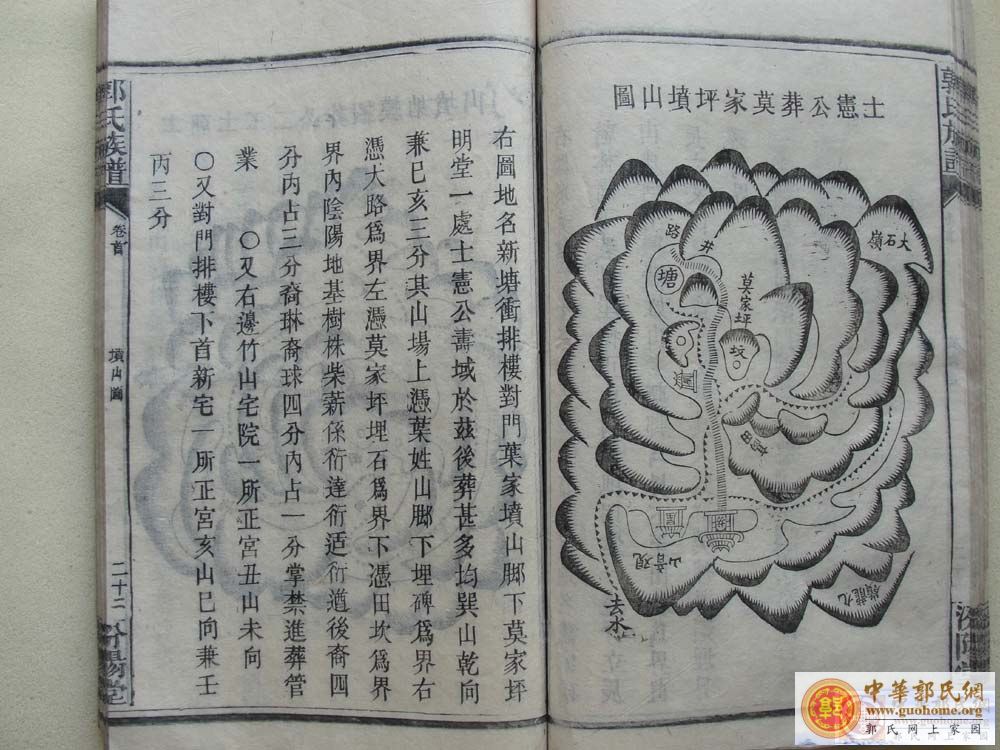 士憲公葬莫家坪墳山圖
大石嶺
井
路
塘
莫家坪
坟
觀音山
九龍嶺
去水
右圖地名新塘衝排樓對門葉家墳山脚下莫家坪
明堂一處士憲公壽域於茲後葬甚多均巽山乾向
兼巳亥三分其山場上憑葉姓山脚下埋碑爲界右
憑大路爲界左憑莫家坪埋石爲界下憑田坎爲界
界內陰陽地基樹株柴薪係衍達衍适衍遒後裔四
分丙占三分裔琳裔球四分內占一分掌禁進葬管
業 〇又右邊竹山宅院一所正宮丑山未向
〇又對門排樓下首新宅一所正宮亥山巳向兼壬
丙三分
郭氏族譜
卷首
墳山圖
二十二
汾陽堂
中華郭氏網
www.guohome.org
郭氏网上家园